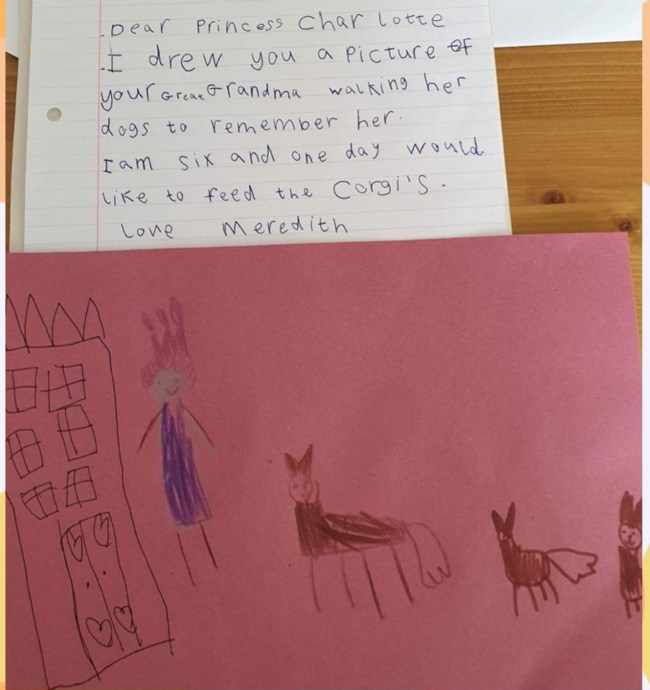 Dear Princess Charlotte
I drew you a picture of
your Great Grandma walking her
dogs to remember her.
I am six and one day would
like to feed the Corgi's.
Love Meredith